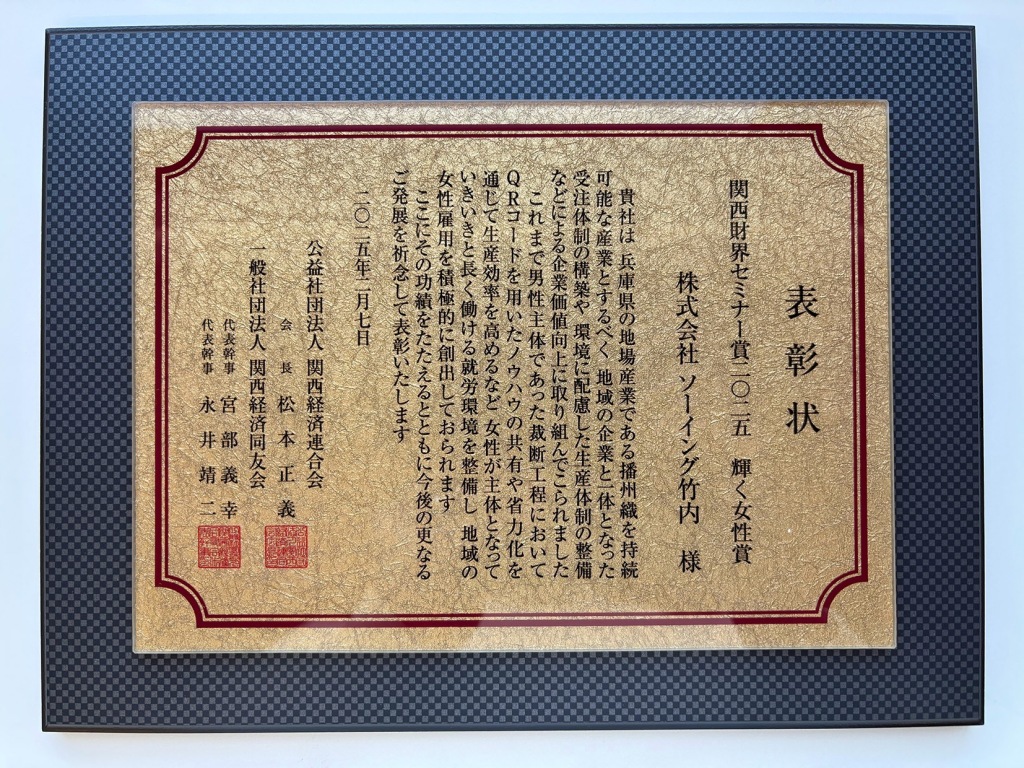 表彰状
関西財界セミナー賞二〇二五 輝く女性賞
株式会社 ソーイング竹内 様
貴社は 兵庫県の地場産業である播州織を持続
可能な産業とするべく 地域の企業と一体となった
受注体制の構築や 環境に配慮した生産体制の整備
などによる企業価値向上に取り組んでこられました
これまで男性主体であった裁断工程において
QRコードを用いたノウハウの共有や省力化を
通じて生産効率を高めるなど 女性が主体となって
いきいきと長く働ける就労環境を整備し 地域の
女性雇用を積極的に創出しておられます
ここにその功績をたたえるとともに今後の更なる
ご発展を祈念して表彰いたします
二〇二五年二月七日
公益社団法人 関西経済連合会
会長 松本正義
一般社団法人 関西経済同友会
代表幹事 宮部義幸
代表幹事 永井靖二